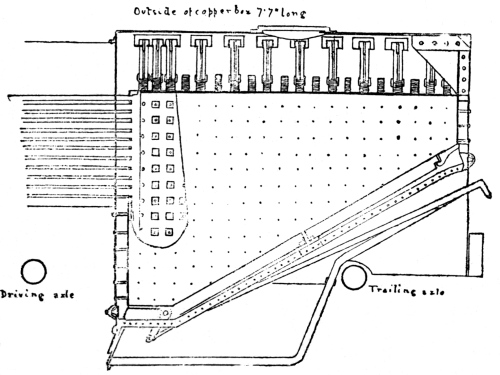 Outside of copper box 7'7" long
Driving axle
Trailing axle